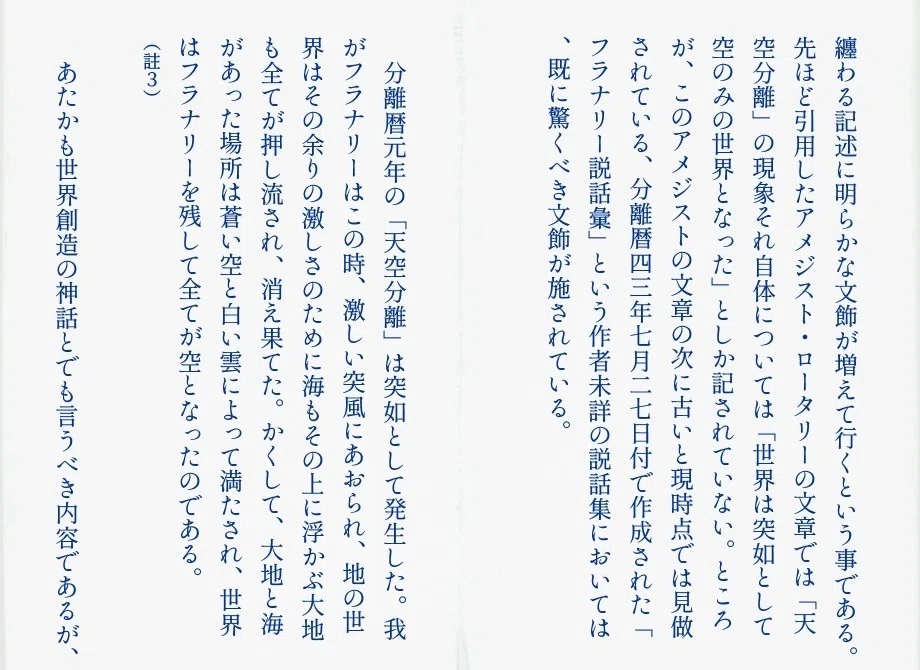 纏わる記述に明らかな文飾が増えて行くという事である。
先ほど引用したアメジスト・ロータリーの文章では「天
空分離」の現象それ自体については「世界は突如として
空のみの世界となった」としか記されていない。ところ
が、このアメジストの文章の次に古いと現時点では見做
されている、分離暦四三年七月二七日付で作成された「
フラナリー説話彙」という作者未詳の説話集においては
、既に驚くべき文飾が施されている。
分離暦元年の「天空分離」は突如として発生した。我
がフラナリーはこの時、激しい突風にあおられ、地の世
界はその余りの激しさのために海もその上に浮かぶ大地
も全てが押し流され、消え果てた。かくして、大地と海
があった場所は蒼い空と白い雲によって満たされ、世界
はフラナリーを残して全てが空となったのである。
（註３）
あたかも世界創造の神話とでも言うべき内容であるが、